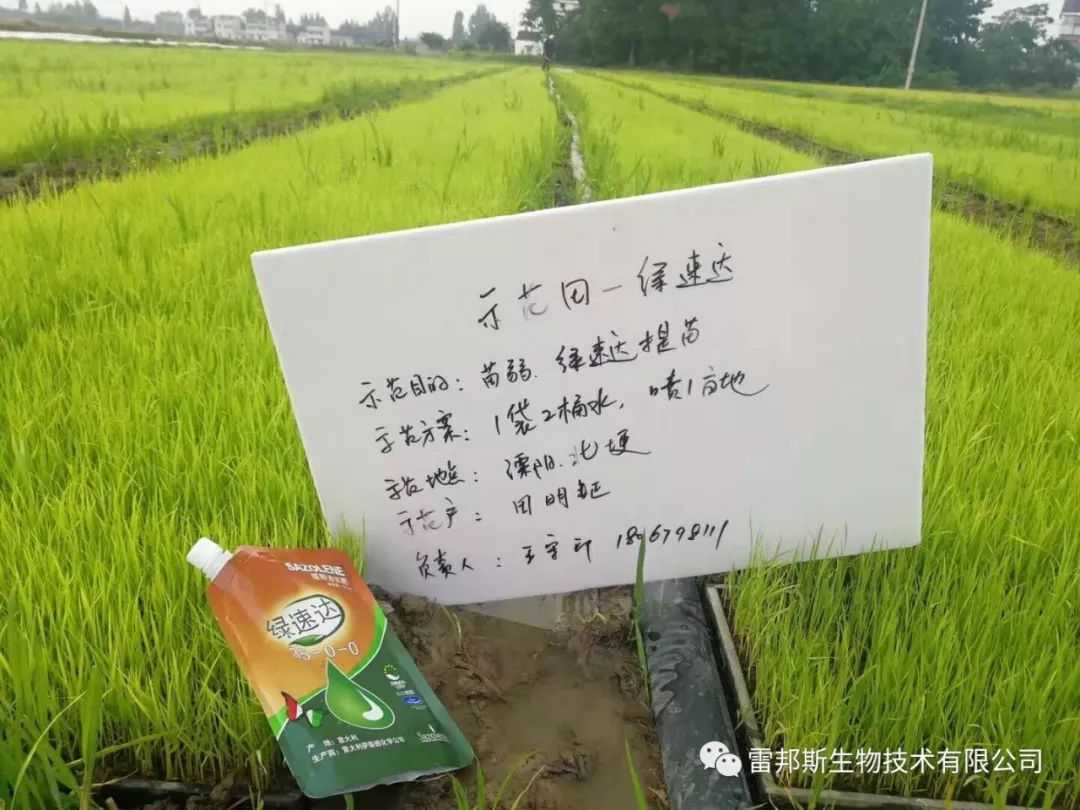 示范田一绿速达
示范目的：苗弱.绿速达提苗
示范方案：1袋2桶水，喷1亩地
示范地点：溧阳.北埂
示范户：田明
负责人：王守印
SAZOLENE
绿速达
35-0-0
产 地：意大利
生产商：意大利萨瑞德化学公司
Sazolene
雷邦斯生物技术有限公司